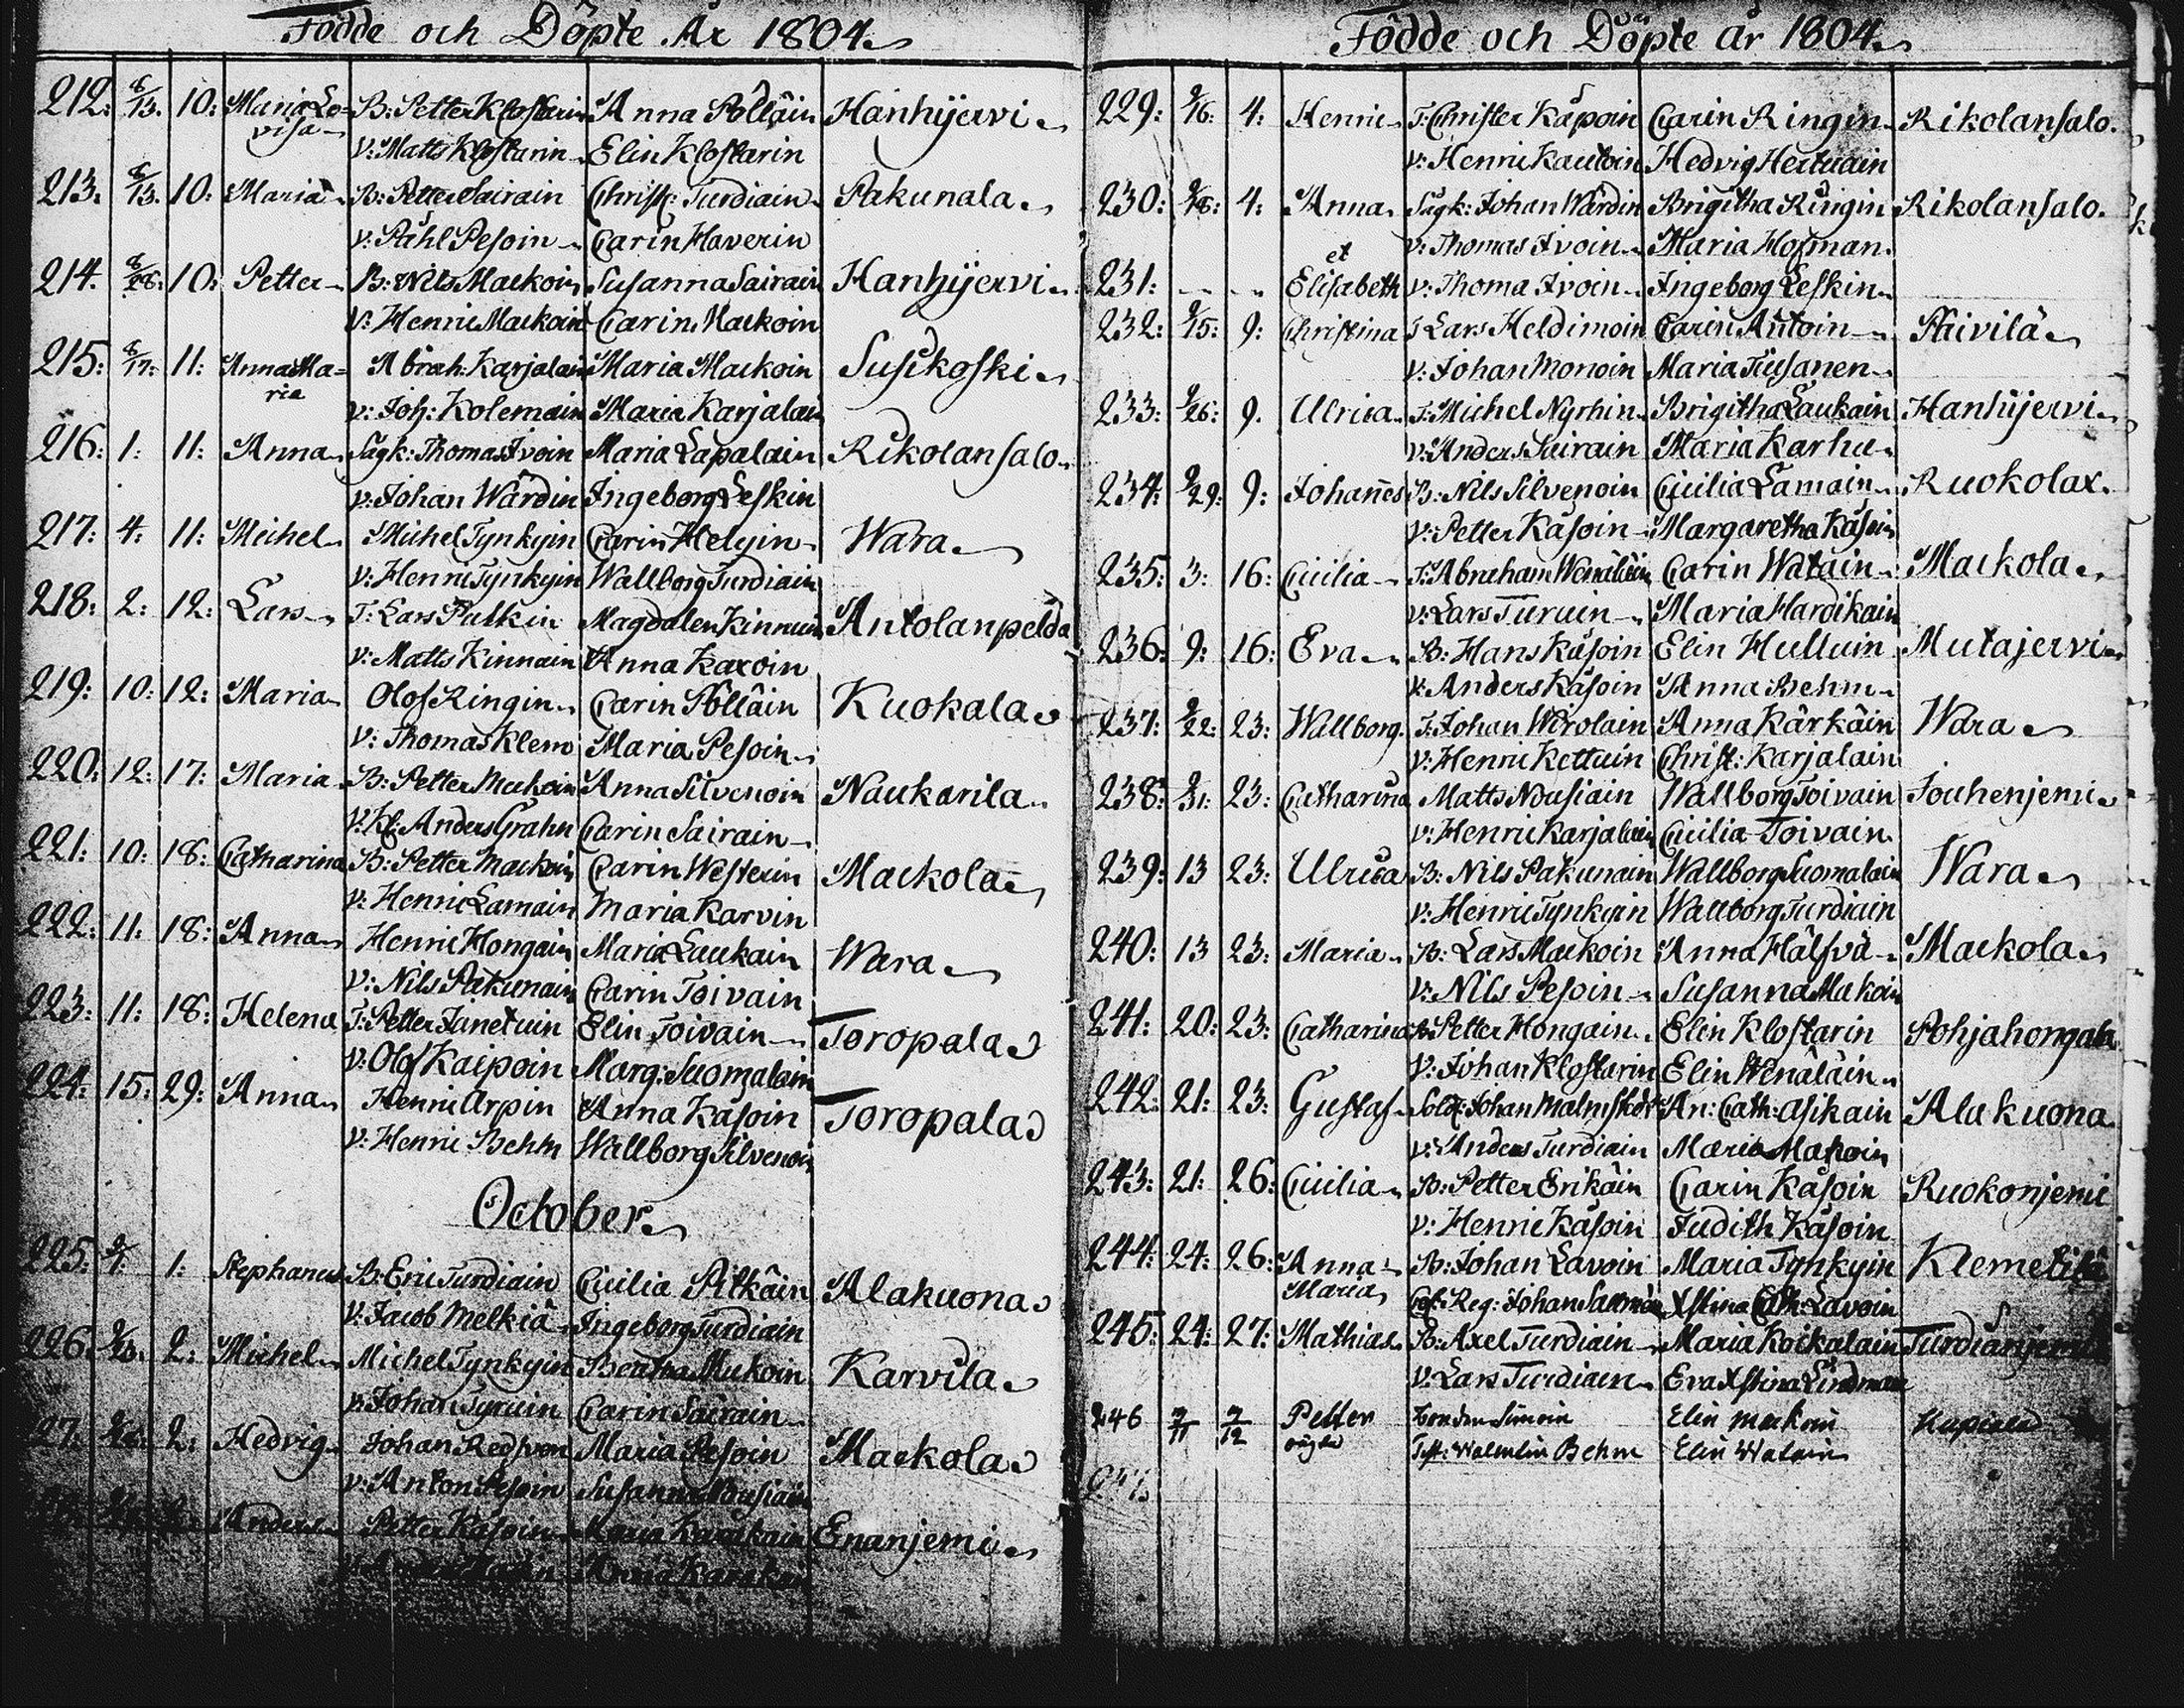 Födde och Döpte År 1804.
212: 8/13. 10: Maria Lo= B: Petter Klostarin Anna Pöllåin Hanhijervi
visa V: Matts Klostarin Elin Klostarin
213: 8/13. 10: Maria B: Petter Sairain Christ: Turdiain Pakunala
V: Påhl Pesoin Carin Haverin
214. 8/28: 10: Petter B: Nils Mackoin Susanna Sairain Hanhijervi
V: Henric Mackoin Carin Mackoin
215: 8/17: 11: Anna Ma= Abrah: Karjalain Maria Mackoin Susikoski
ria V: Joh: Kolemain Maria Karjalain
216: 1: 11: Anna Sågk: Thomas Ivoin Maria Lapalain Rikolansalo
V: Johan Wårdin Ingeborg Leskin
217: 4: 11: Michel Michel Tynkyin Carin Helyin Wara
V: Henric Tynkyin Wallborg Turdiain
218: 2: 12: Lars T: Lars Pulkin Magdalen Kinnuin Antolanpelda
V: Matts Kinnain Anna Karoin
219: 10: 12: Maria Olof Ringin Carin Pöllåin Kuokala
V: Thomas Klem Maria Pesoin
220: 12: 17: Maria B: Petter Mackoin Anna Silvenoin Naukarila
V: Anders Grahn Carin Sairain
221: 10: 18: Catharina B: Petter Mackoin Carin Westerin Mackola
V: Henric Lamain Maria Karvin
222: 11: 18: Anna Henric Hongain Maria Laukain Wara
V: Nils Pakunain Carin Toivain
223: 11: 18: Helena T: Petter Janetuin Elin Toivain Toropala
V: Olof Kaipoin Marg: Suomalain
224: 15: 29: Anna Henric Arpin Anna Kåsoin Toropala
V: Henric Behm Wallborg Silvenoin
October
225: 1: Stephanus B: Eric Turdiain Cicilia Pitkåin Alakuona
V: Jacob Melkiä Ingeborg Turdiain
226. 2: Michel Michel Tynkyin Beatha Mukoin Karvila
V: Johan Tyruin Carin Sairain
27: 2: Hedvig Johan Redsven Maria Pesoin Mackola
V: Anton Pesoin Susanna Nousiain
Anders Petter Kåsoin Maria Enanjemi
Anna
Födde och Döpte år 1804.
229: 9/16: 4: Henric T: Christer Kåpoin Carin Ringin Rikolansalo.
V: Henric Kautoin Hedvig Hertuain
230: 9/18: 4: Anna Sågk: Johan Wårdin Brigitha Ringin Rikolansalo.
et V: Thomas Ivoin Maria Hofman
231: Elisabeth V: Thoma Ivoin Ingeborg Leskin
232: 9/15: 9: Christina I Lars Heldimoin Carin Antoin Päivilä
V: Johan Monoin Maria Tiusanen
233: 9/26: 9. Ulrica I: Michel Nyrhin Brigitha Laukain Hanhijervi
V: Anders Sairain Maria Karhu
234: 9/29: 9: Johañes B: Nils Silvenoin Cicilia Lamain Ruokolax.
V: Petter Kåsoin Margaretha Kåsoin
235: 3: 16: Cicilia I: Abraham Wenäläin Carin Watain Mackola
V: Lars Turuin Maria Hardikain
236: 9: 16: Eva B: Hans Kåsoin Elin Hulluin Mutajervi
V: Anders Kåsoin Anna Behm
237: 9/22: 23: Wallborg. I: Johan Wirolain Anna Kärkäin Wara
V: Henric Kettuin Christ: Karjalain
238: 9/31: 23: Catharina Matts Nousiain Wallborg Toivain Jouhenjemi
V: Henric Karjalain Cicilia Toivain
239: 13 23: Ulrica B: Nils Pakunain Wallborg Suomalain Wara
V: Henric Tynkyin Wallborg Turdiain
240: 13 23: Maria B: Lars Mackoin Anna Hälfvä Mackola
V: Nils Pesoin Susanna Makoin
241: 20: 23: Catharina B: Petter Hongain Elin Klostarin Pohjahongala
V: Johan Klostarin Elin Wenäläin
242: 21: 23: Gustaf Sold: Johan Malmstedt An: Cath: Asikain Alakuona
V: Anders Turdiain Maria Makoin
243: 21: 26: Cicilia B: Petter Erikäin Carin Kåsoin Ruokonjemi
V: Henric Kåsoin Judith Kåsoin
244: 24: 26: Anna B: Johan Lavoin Maria Tynkyin Klemetilä
Maria Reg: Johan Xstina Cath: Lavoin
245: 24: 27: Mathias B: Axel Turdiain Maria Koikalain Turdianjemi
V: Lars Turdiain Eva Xstina Lindman
246 7/11 7/12 Petter Simoin Elin Mackoin
Test: Behm Elin